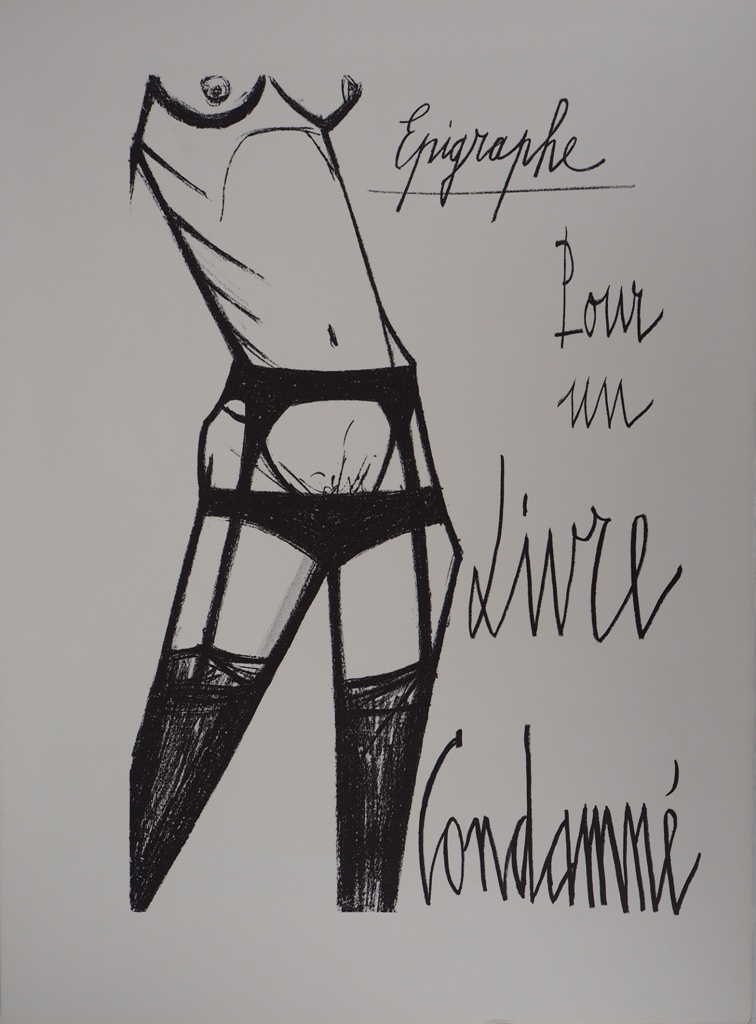 Epigraphe
Pour
un
Livre
Condamné